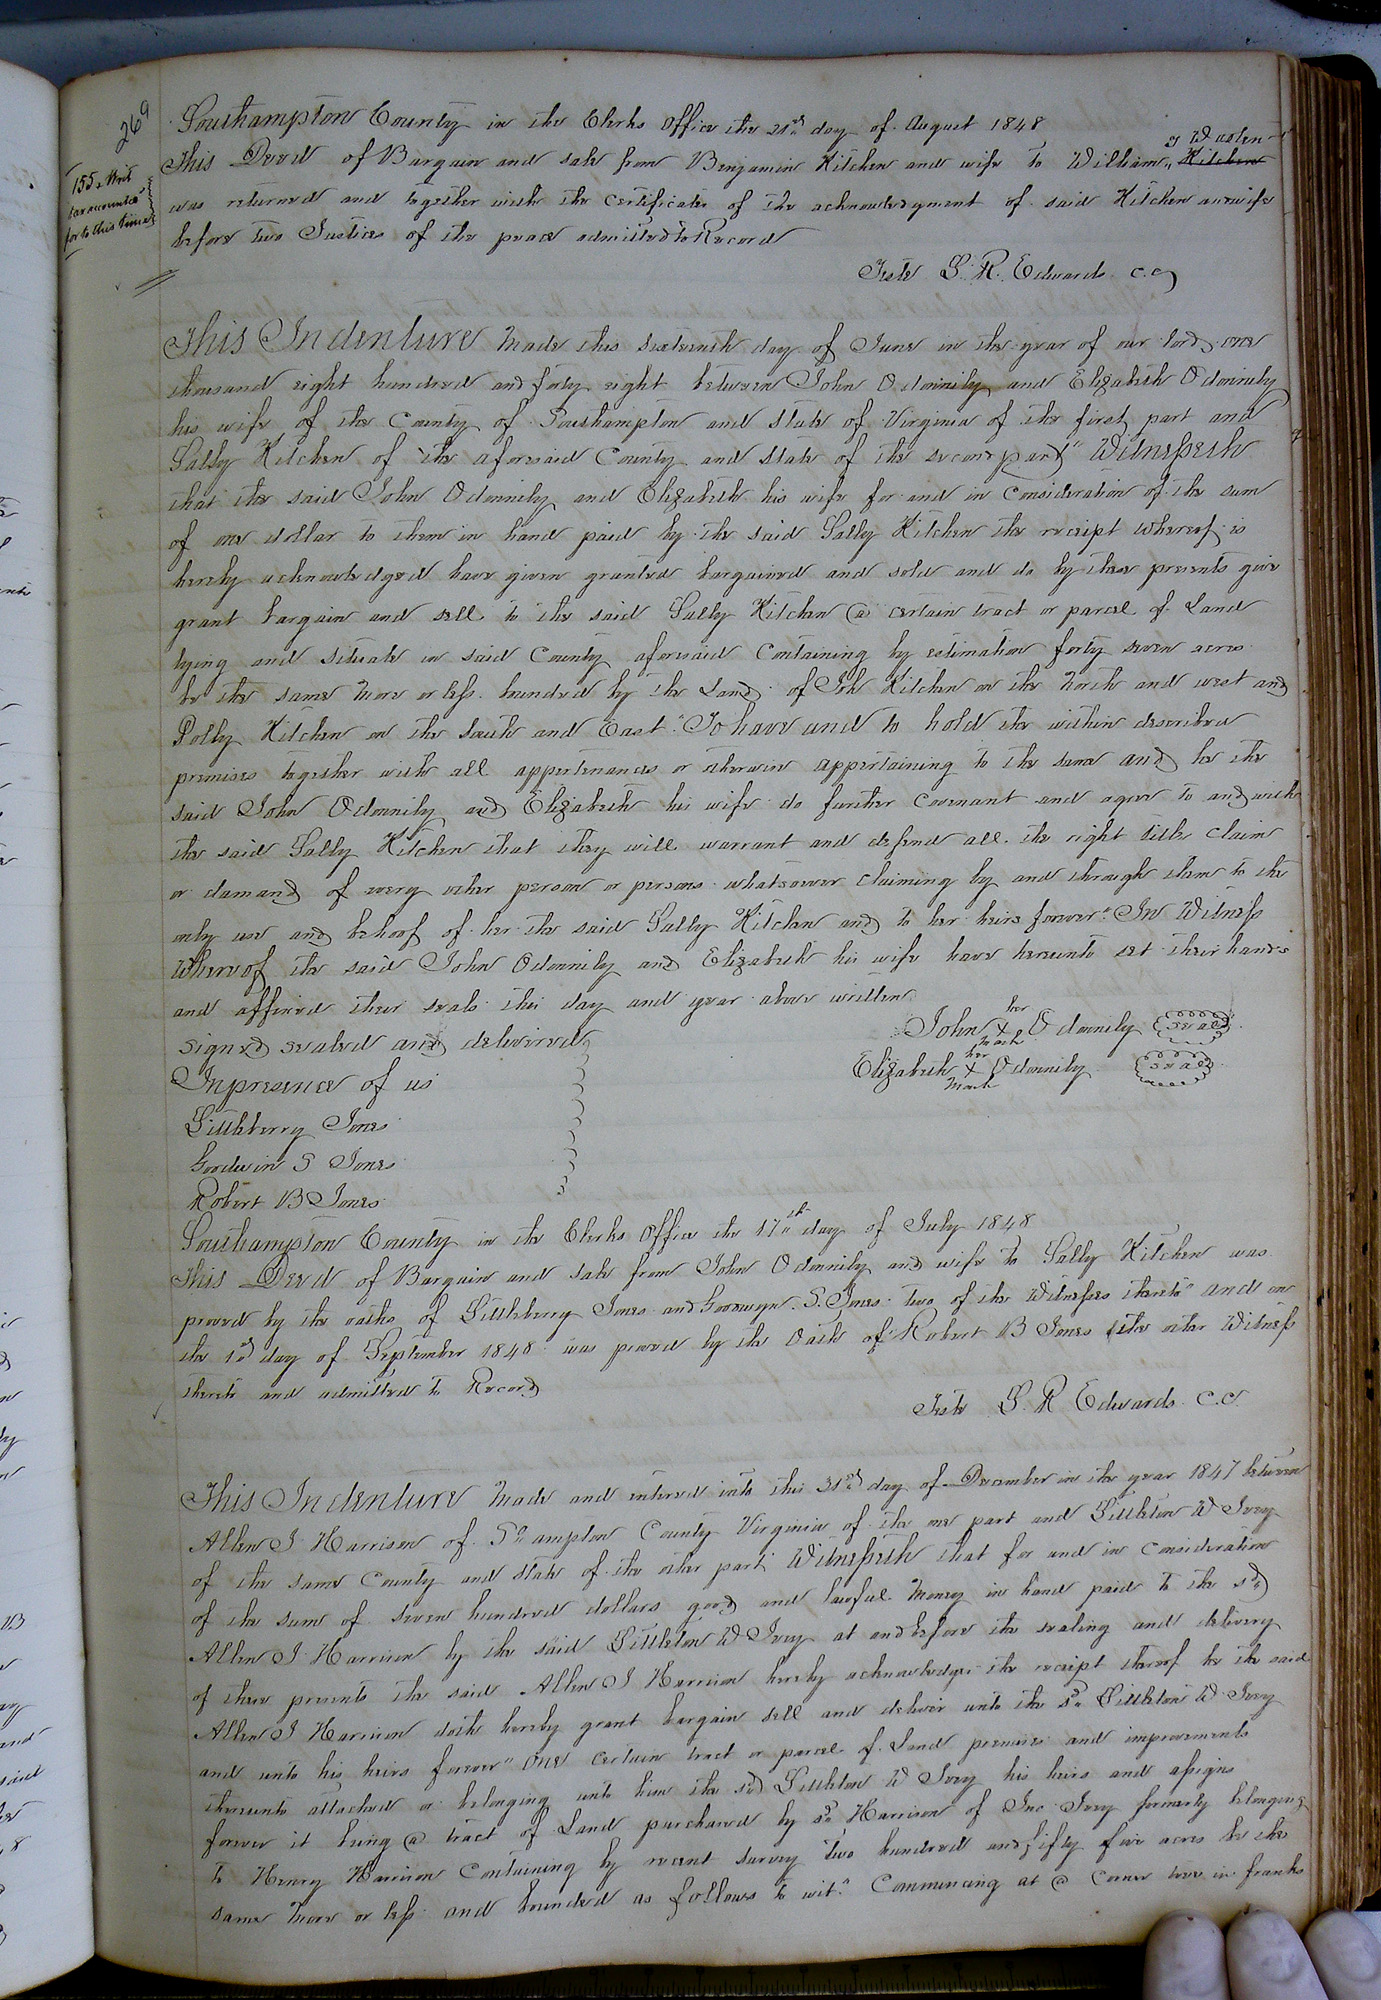 269
155 Writ
tax accounted
for to this time
Southampton County in the Clerks Office the 21st day of August 1848
This Deed of Bargain and sale from Benjamin Kitchen and wife to William Kitchen
was returned and together with the certificates of the acknowledgment of said Kitchen and wife
before two Justices of the peace admitted to Record
Teste L. R. Edwards c.c
This Indenture Made this sixteenth day of June in the year of our lord one
thousand eight hundred and forty eight between John Odonnily and Elizabeth Odonnily
his wife of the County of Southampton and State of Virginia of the first part and
Sally Kitchen of the aforesaid County and State of the second part" Witnesseth
that the said John Odonnily and Elizabeth his wife for and in consideration of the sum
of one dollar to them in hand paid by the said Sally Kitchen the receipt whereof is
hereby acknowledged have given granted bargained and sold and do by these presents give
grant bargain and sell to the said Sally Kitchen a certain tract or parcel of Land
lying and situate in said County aforesaid Containing by estimation forty seven acres
be the same more or less bounded by the Land of Kitchen on the North and west and
Polly Kitchen on the South and East "To have and to hold the within described
premises together with all appertenances or otherwise appertaining to the same and he the
said John Odonnily and Elizabeth his wife do further Covenant and agree to and with
the said Sally Kitchen that they will warrant and defend all the right title claim
or demand of every other person or persons whatsoever claiming by and through them to the
only use and behoof of her the said Sally Kitchen and to her heirs forever" In Witness
Whereof the said John Odonnily and Elizabeth his wife have hereunto set their hands
and affixed their seals this day and year above written
her
John X Odonnily seal
mark
signed sealed and delivered
her
Elizabeth X Odonnily seal
mark
In presence of us
Littleberry Jones
Goodwin S Jones
Robert B Jones
Southampton County in the Clerks Office the 17th day of July 1848
This Deed of Bargain and sale from John Odonnily and wife to Sally Kitchen was
proved by the oaths of Littleberry Jones and Goodwyn S. Jones two of the Witnesses thereto and on
the 1st day of September 1848 was proved by the Oath of Robert B Jones the other Witness
thereto and admitted to Record
Teste L R Edwards c.c.
This Indenture Made and entered into this 31st day of December in the year 1847 between
Allen J Harrison of So ampton County Virginia of the one part and Littleton W Ivey
of the same County and State of the other part Witnesseth that for and in consideration
of the sum of seven hundred dollars good and lawful money in hand paid to the sd
Allen J Harrison by the said Littleton W Ivey at and before the sealing and delivery
of these presents the said Allen J Harrison hereby acknowledges the receipt thereof he the said
Allen J Harrison doth hereby grant bargain sell and deliver unto the sd Littleton W Ivey
and unto his heirs forever" One certain tract or parcel of Land premises and improvements
thereunto attached or belonging unto him the sd Littleton W Ivey his heirs and assigns
forever it being a tract of Land purchased by sd Harrison of Jno Ivey formerly belonging
to Henry Harrison Containing by recent survey two hundred and fifty five acres be the
same more or less and bounded as follows to wit" Commencing at a Corner tree in franks